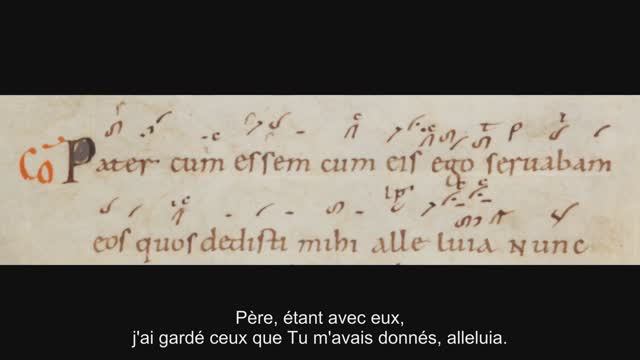 Co Pater cum essem cum eis ego servabam
eos quos dedisti mihi alleluia nunc
Père, étant avec eux,
j'ai gardé ceux que Tu m'avais donnés, alleluia.